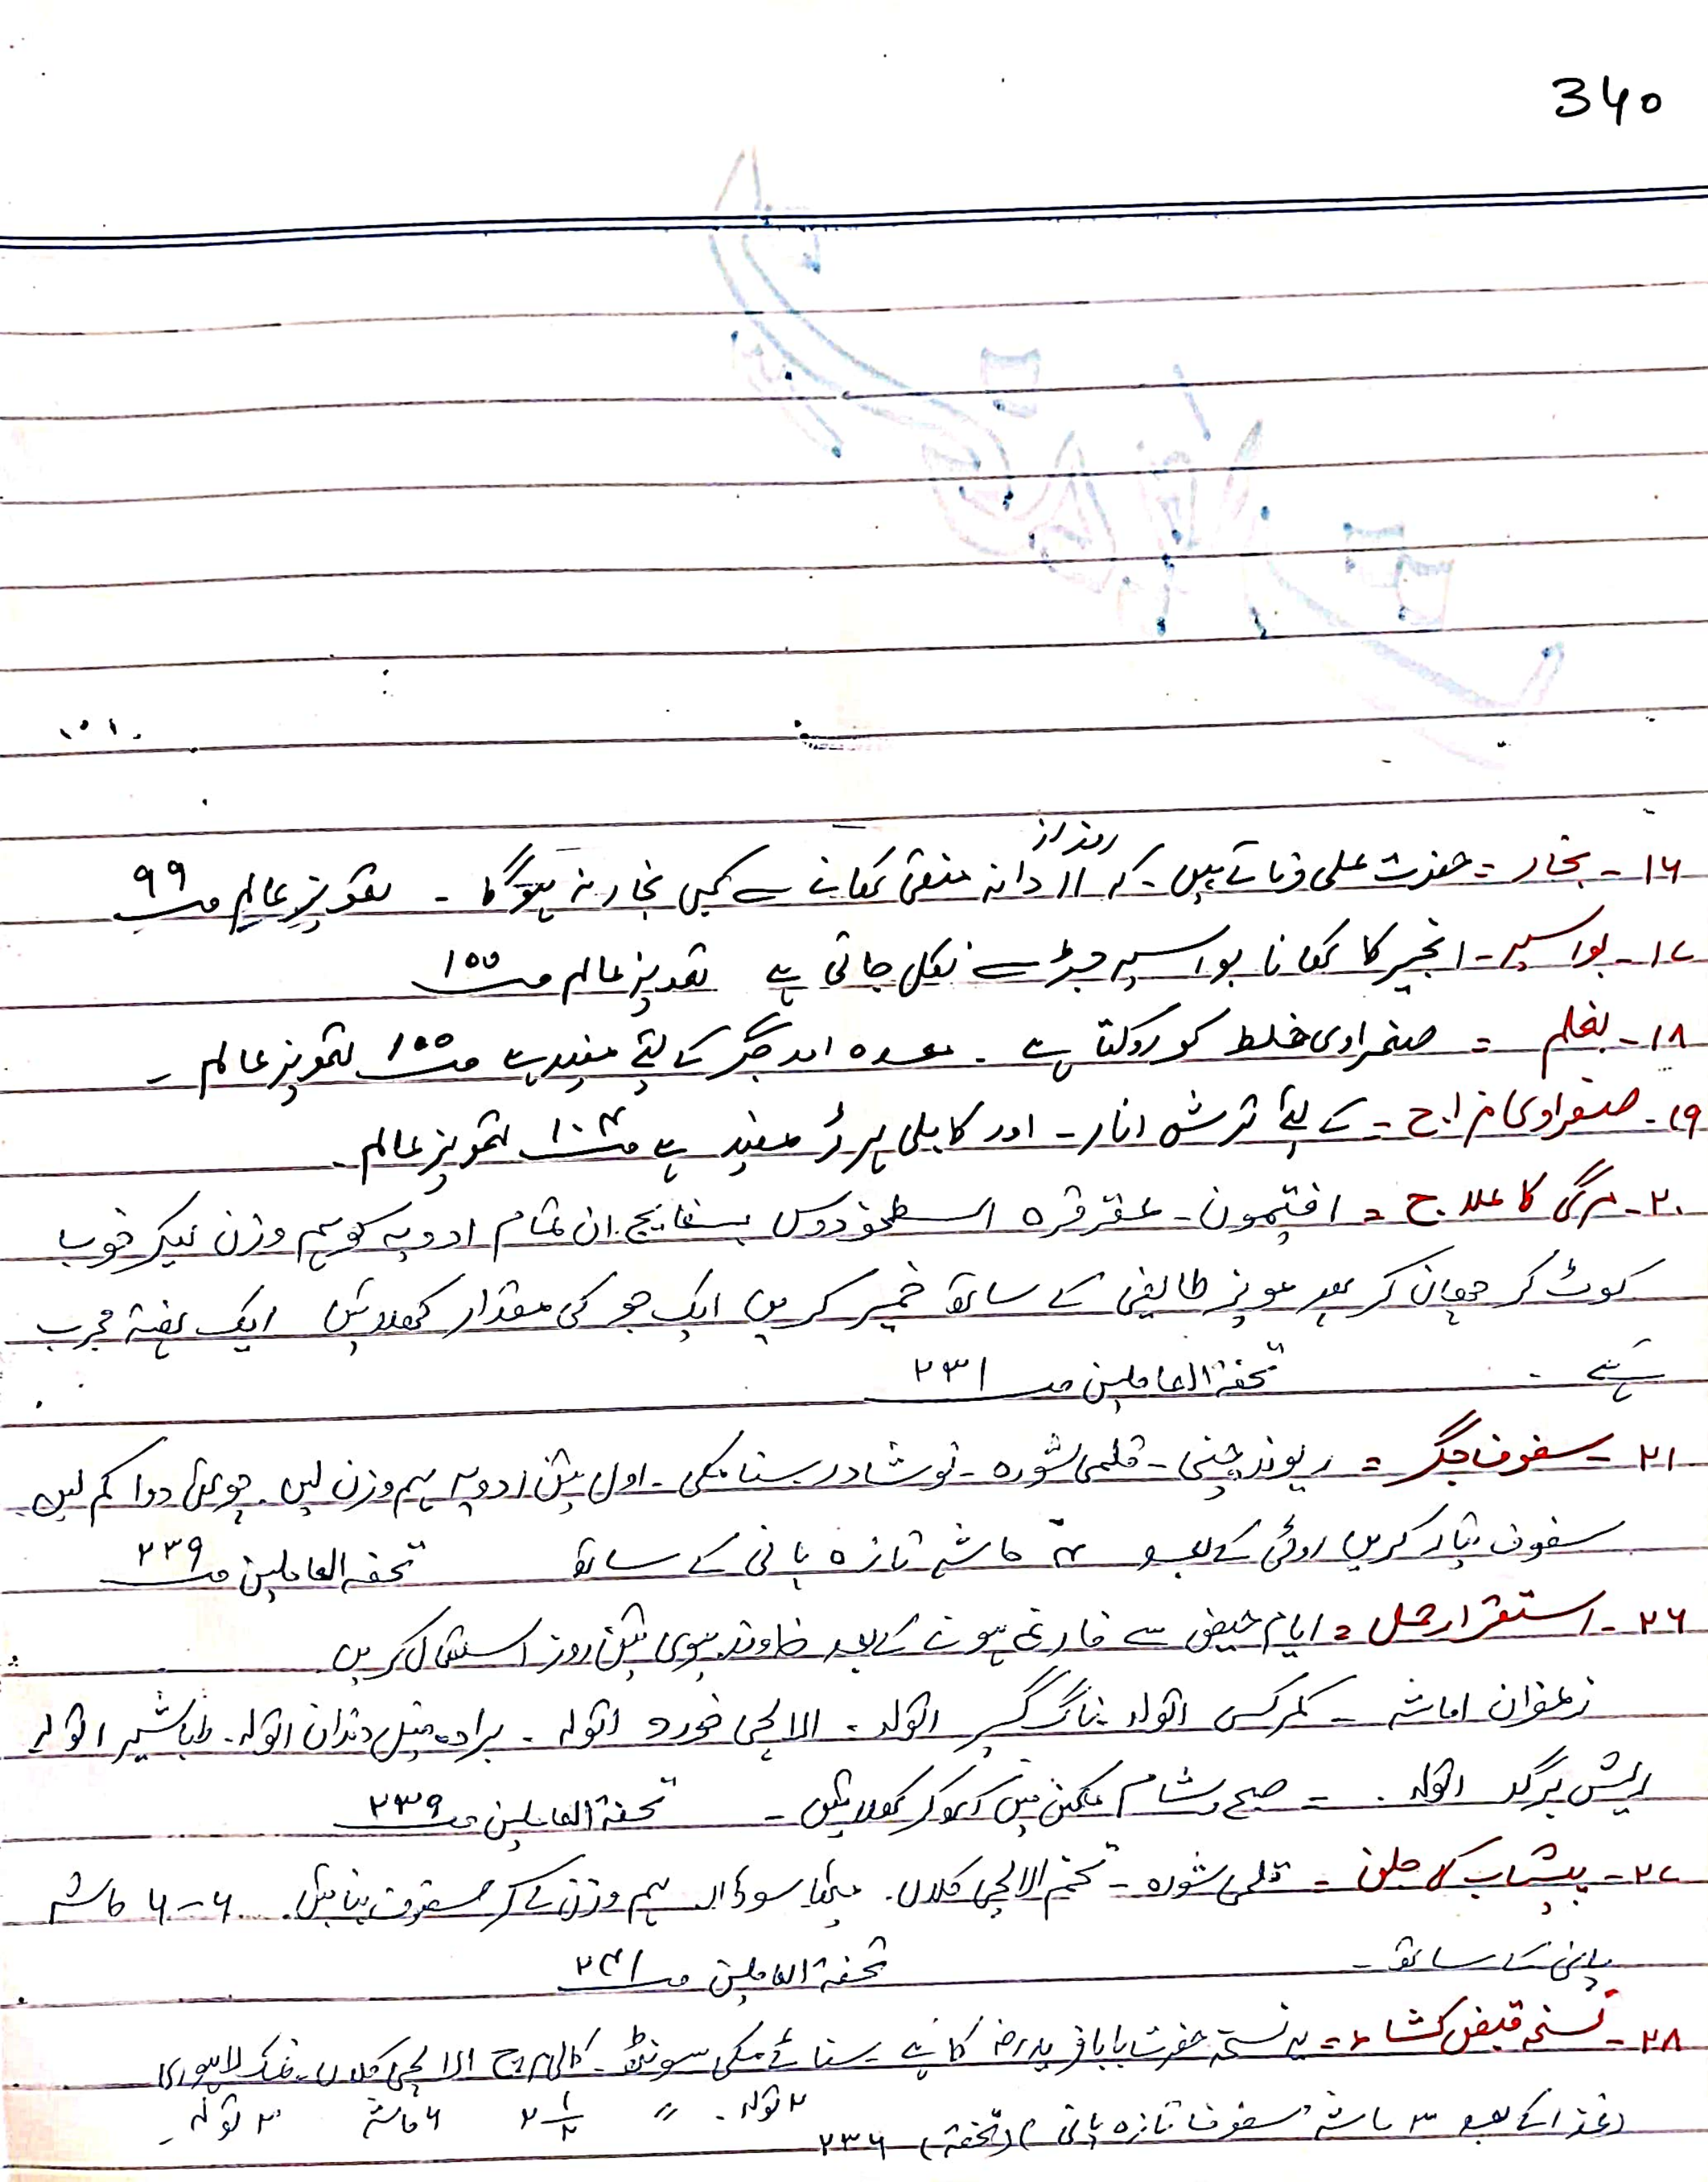 340
روزانہ
۱۶۔ بخار = حضرت علی فرماتے ہیں۔ کہ ۱۱ دانہ منقیٰ کھانے سے کبھی بخار نہ ہوگا ۔ تعویز عالم صـ ۹۹
۱۷۔ بواسیر۔ انجیر کا کھانا بواسیر جڑ سے نکل جاتی ہے تعویز عالم صـ ۱۰۰
۱۸۔ بلغم = صفراوی خلط کو روکتا ہے ۔ معدہ اور جگر کے لئے مفید ہے صـ ۱۰۰ تعویز عالم ۔
۱۹۔ صفراوی مزاج = کے لئے ترش انار۔ اور کابلی ہرڑ مفید ہے صـ ۱۰۴ تعویز عالم ۔
۲۰۔ مرگی کا علاج = افتیمون۔ عقرقرہ اسطخودوس بسفایج۔ ان تمام ادویہ کو ہم وزن لیکر خوب
کوٹ کر چھان کر بعد مویز طائفی کے ساتھ خمیر کریں ایک جو کی مقدار کھلائیں ایک ہفتہ مجرب
ہے ۔ تحفۃ العاملین صـ ۲۳۱
۲۱۔ سفوف جگر = ریوند چینی۔ قلمی شورہ۔ نوشادر۔ سنا مکی۔ اول تین ادویہ ہم وزن لیں۔ چوتھی دوا کم لیں۔
سفوف تیار کریں روٹی کے بعد ۴ ماشہ تازہ پانی کے ساتھ تحفۃ العاملین صـ ۲۳۹
۲۶۔ استقرار حمل = ایام حیض سے فارغ ہونے کے بعد خاوند بیوی تین روز استعمال کریں
زعفران ۱ماشہ ۔ کمرکس ۱تولہ ناگ کیسر ۱تولہ ۔ الائچی خورد ۱تولہ ۔ برادہ فیل دندان ۱تولہ۔ طباشیر ۱تولہ
ریش برگد ۱تولہ ۔ صبح و شام مکھن میں رکھ کر کھلائیں ۔ تحفۃ العاملین صـ ۲۳۹
۲۷۔ پیشاب کی جلن = قلمی شورہ ۔ تخم الائچی کلاں۔ میٹھا سوڈا۔ ہم وزن لے کر سفوف بنائیں۔ ۶-۶ ماشہ
پانی کے ساتھ ۔ تحفۃ العاملین صـ ۲۴۱
۲۸۔ نسخہ قبض کشاء = یہ نسخہ حضرت بابا فرید رضہ کا ہے ۔ سنائے مکی سونٹھ۔ کالی مرچ الائچی کلاں۔ نمک لاہوری
(غذا کے بعد ۳ ماشہ سفوف تازہ پانی) (تحفہ) ۲۳۶ ۲تولہ ۔ 〃 ۲ ½ ۶ماشہ ۳ تولہ ۔